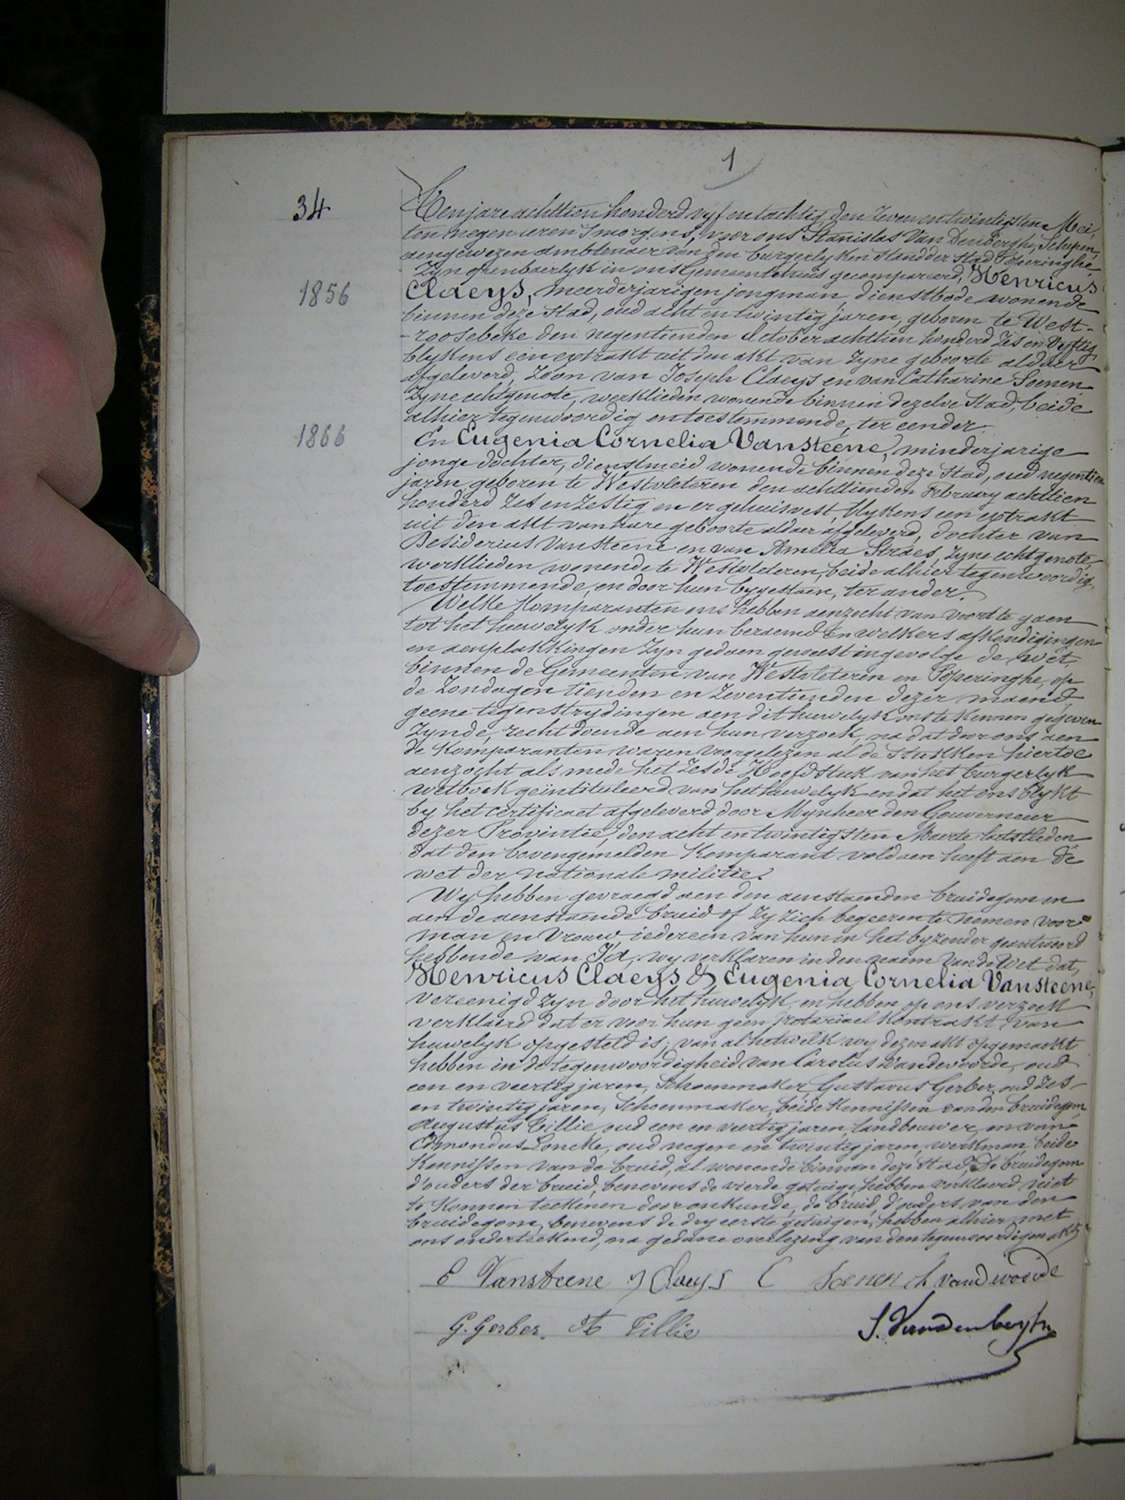 1
34
Ten jare achttien honderd vyf en tachtig, den zeven en twintigsten Mei,
ten negen uren smorgens, voor ons Stanislas Van Denberghe, Schepen,
aengewezen ambtenaer van den burgerlyken stand der stad Poperinghe
zyn openbaerlyk in ons Gemeentehuis gecompareerd, Henricus
1856
Claeys, meerderjarigen jongman, dienstbode wonende
binnen deze stad, oud acht en twintig jaren, geboren te West-
-roosebeke den negentienden October achttien honderd zes en vyftig
blykens een extrakt uit den akt van zyne geboorte aldaer
afgeleverd, zoon van Joseph Claeys en van Catharine Soenen
zyne echtgenote, werklieden wonende binnen dezelve stad, beide
alhier tegenwoordig en toestemmende, ter eender.
1866
En Eugenia Cornelia Vansteene, minderjarige
jonge dochter, dienstmeid wonende binnen deze stad, oud negentien
jaren geboren te Westvleteren den achttienden February achttien
honderd zes en zestig en er gehuisvest, blykens een extrakt
uit den akt van hare geboorte aldaer afgeleverd, dochter van
Desiderius Vansteene en van Amelia Straes, zyne echtgenote,
werklieden wonende te Westvleteren, beide alhier tegenwoordig,
toestemmende, en door hun bygestaen, ter ander.
Welke komparanten ons hebben aenzocht van voord te gaen
tot het huwelyk onder hun beraemd en welkers afkondigingen
en aenplakkingen zyn gedaen geweest ingevolge de wet,
binnen de Gemeenten van Westvleteren en Poperinghe, op
de zondagen tienden en zeventienden dezer maend,
geene tegenstrydingen aen dit huwelyk ons te kennen gegeven
zynde, recht doende aen hun verzoek, na dat door ons aen
de komparanten waren voorgelezen al de stukken hiertoe
aenzocht als mede het zesde Hoofdstuk van het burgerlyk
wetboek geintituleerd van het huwelyk en dat het ons blykt
by het certificaet afgeleverd door Mynheer den Gouverneur
dezer Provintie, den acht en twintigsten Maerte laetstleden
dat den bovengemelden komparant voldaen heeft aen de
wet der nationale militie.
Wy hebben gevraegd aen den aenstaenden bruidegom en
aen de aenstaende bruid of zy zich begeeren te nemen voor
man en vrouw, iedereen van hun in het byzonder geantwoord
hebbende van Ja, wy verklaren in den naem van de Wet dat,
Henricus Claeys & Eugenia Cornelia Vansteene,
vereenigd zyn door het huwelyk, en hebben op ons verzoek
verklaerd dat er voor hun geen notariael kontrakt van
huwelyk opgesteld is, van al hetwelk wy dezen akt opgemaekt
hebben in de tegenwoordigheid van Carolus Vandevoorde, oud
een en veertig jaren, schoenmaker, Gustavus Gerber, oud zes-
en twintig jaren, schoenmaker, beide kennissen van den bruidegom,
Augustus Tillie oud een en veertig jaren, landbouwer, en van
Edmondus Loncke, oud negen en twintig jaren, werkman, beide
kennissen van de bruid, al wonende binnen deze stad, de bruidegom
d'ouders der bruid, benevens de vierde getuige, hebben verklaerd niet
te konnen teekenen door onkunde, de bruid, d'ouders van den
bruidegom, benevens de dry eerste getuigen, hebben alhier met
ons onderteekend, na gedane overlezing van den tegenwoordigen akt.
E Vansteene J Claeys C Soenen Ch vandevoorde
G. Gerber. A Tillie S. Vandenberghe